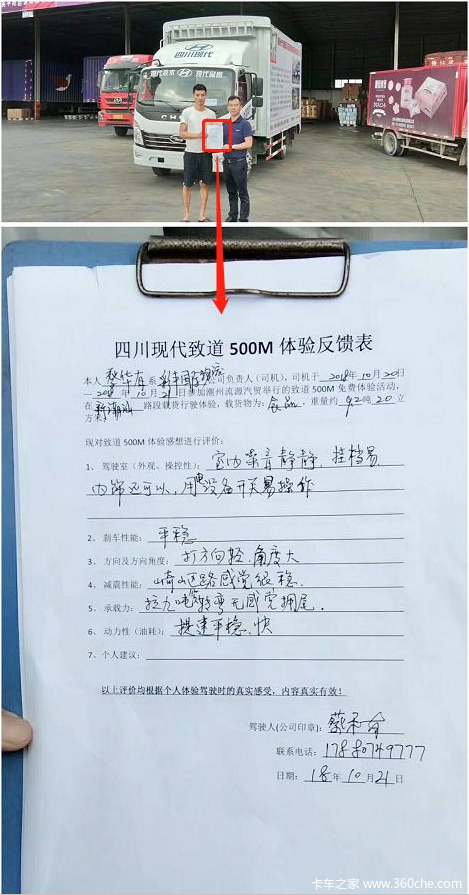 四川现代
现代技术 现代品质
四川现代致道 500M 体验反馈表
本人 系 公司负责人（司机），司机于 2018年10月20日
— 2018 年 10 月 21 日参加潮州流源汽贸举行的致道 500M 免费体验活动，
在 新潮汕 路段载货行驶体验，我货物为：食品，重量约 9.2吨 20 立
方米。
现对致道 500M 体验感想进行评价：
1、驾驶室（外观、操控性）：室内噪音静静，挂档易，
内饰还可以，用电设备开关易操作
2、刹车性能：平稳
3、方向及方向角度：打方向轻、角度大
4、减震性能：崎山区路感觉很稳，
5、承载力：拉九吨货转弯无感觉拥尾。
6、动力性（油耗）：提速平稳、快
7、个人建议：
以上评价均根据个人体验驾驶时的真实感受，内容真实有效！
驾驶人(公司印章)：
联系电话：17880749777
日期：18年10月21日
卡车之家 www.360che.com